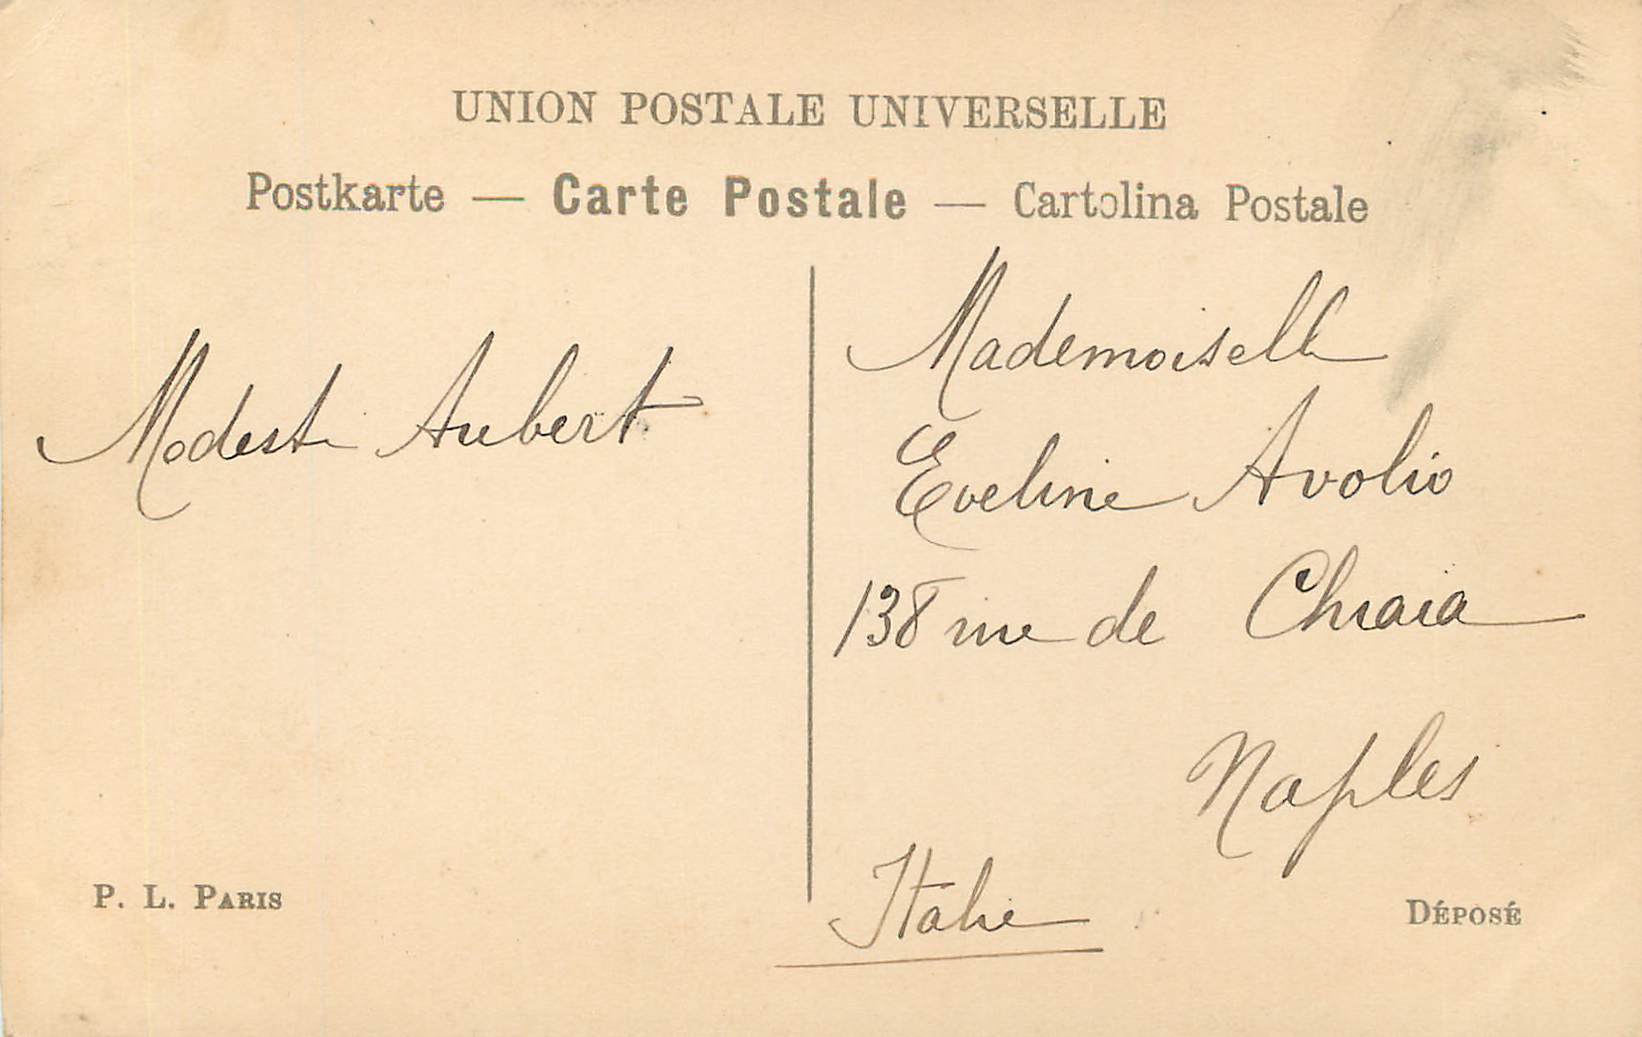 UNION POSTALE UNIVERSELLE
Postkarte — Carte Postale — Cartolina Postale
Modeste Aubert
Mademoiselle
Eveline Avolio
138 rue de Chiaia
Naples
Italie
P. L. PARIS
DÉPOSÉ